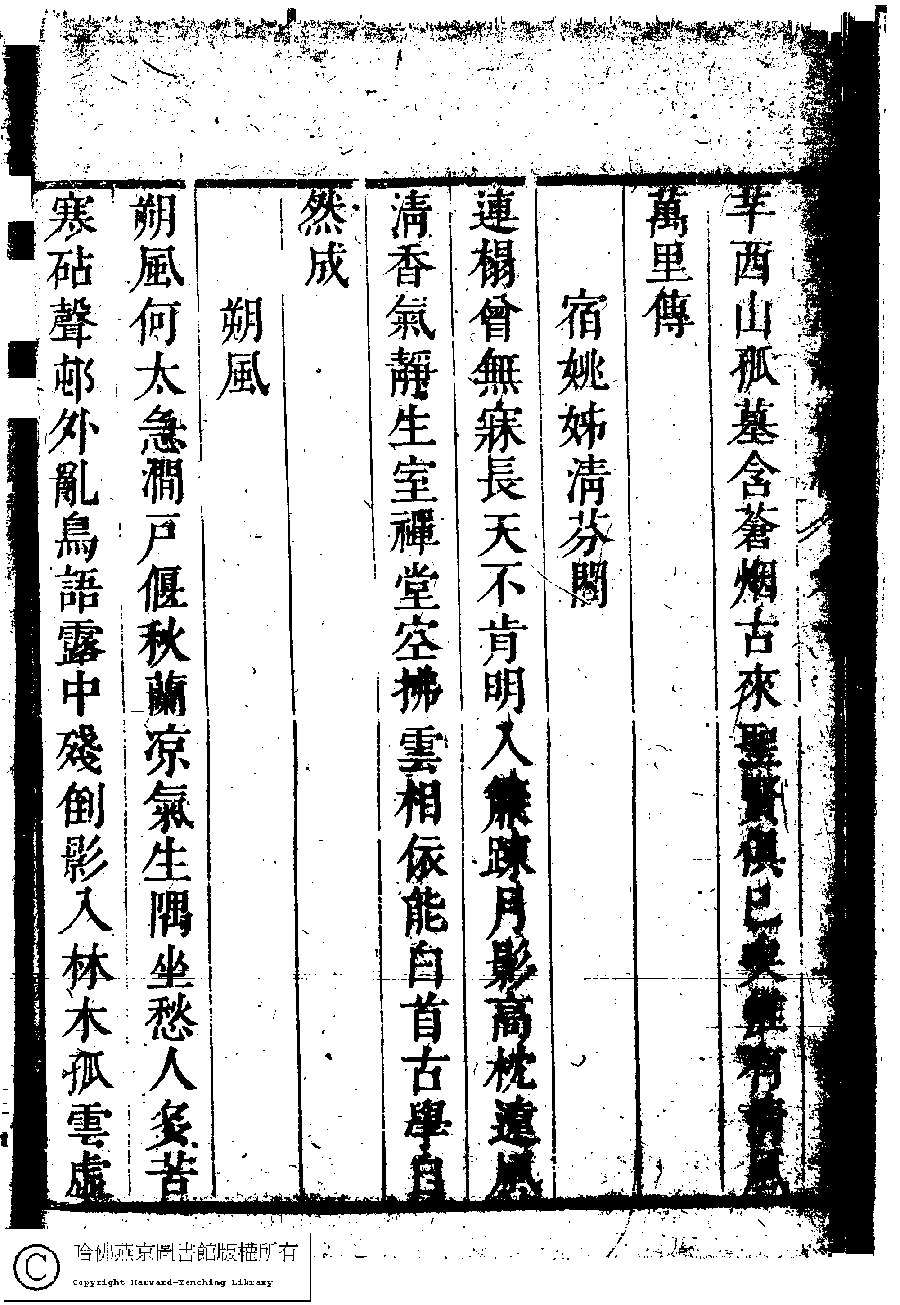 芉西山孤墓含蒼烟古來聖賢俱已矣維有清風
萬里傳
宿姚姊清芬閣
連榻曾無寐長天不肯明入簾踈月影高枕遠風
清香氣靜生室禪堂空拂雲相依能白首古學自
然成
朔風
朔風何太急澗戶偃秋蘭凉氣生隅坐愁人多苦
寒砧聲邨外亂鳥語露中殘倒影入林木孤雲虛
哈佛燕京圖書館版權所有
Copyright Harvard-Yenching Library